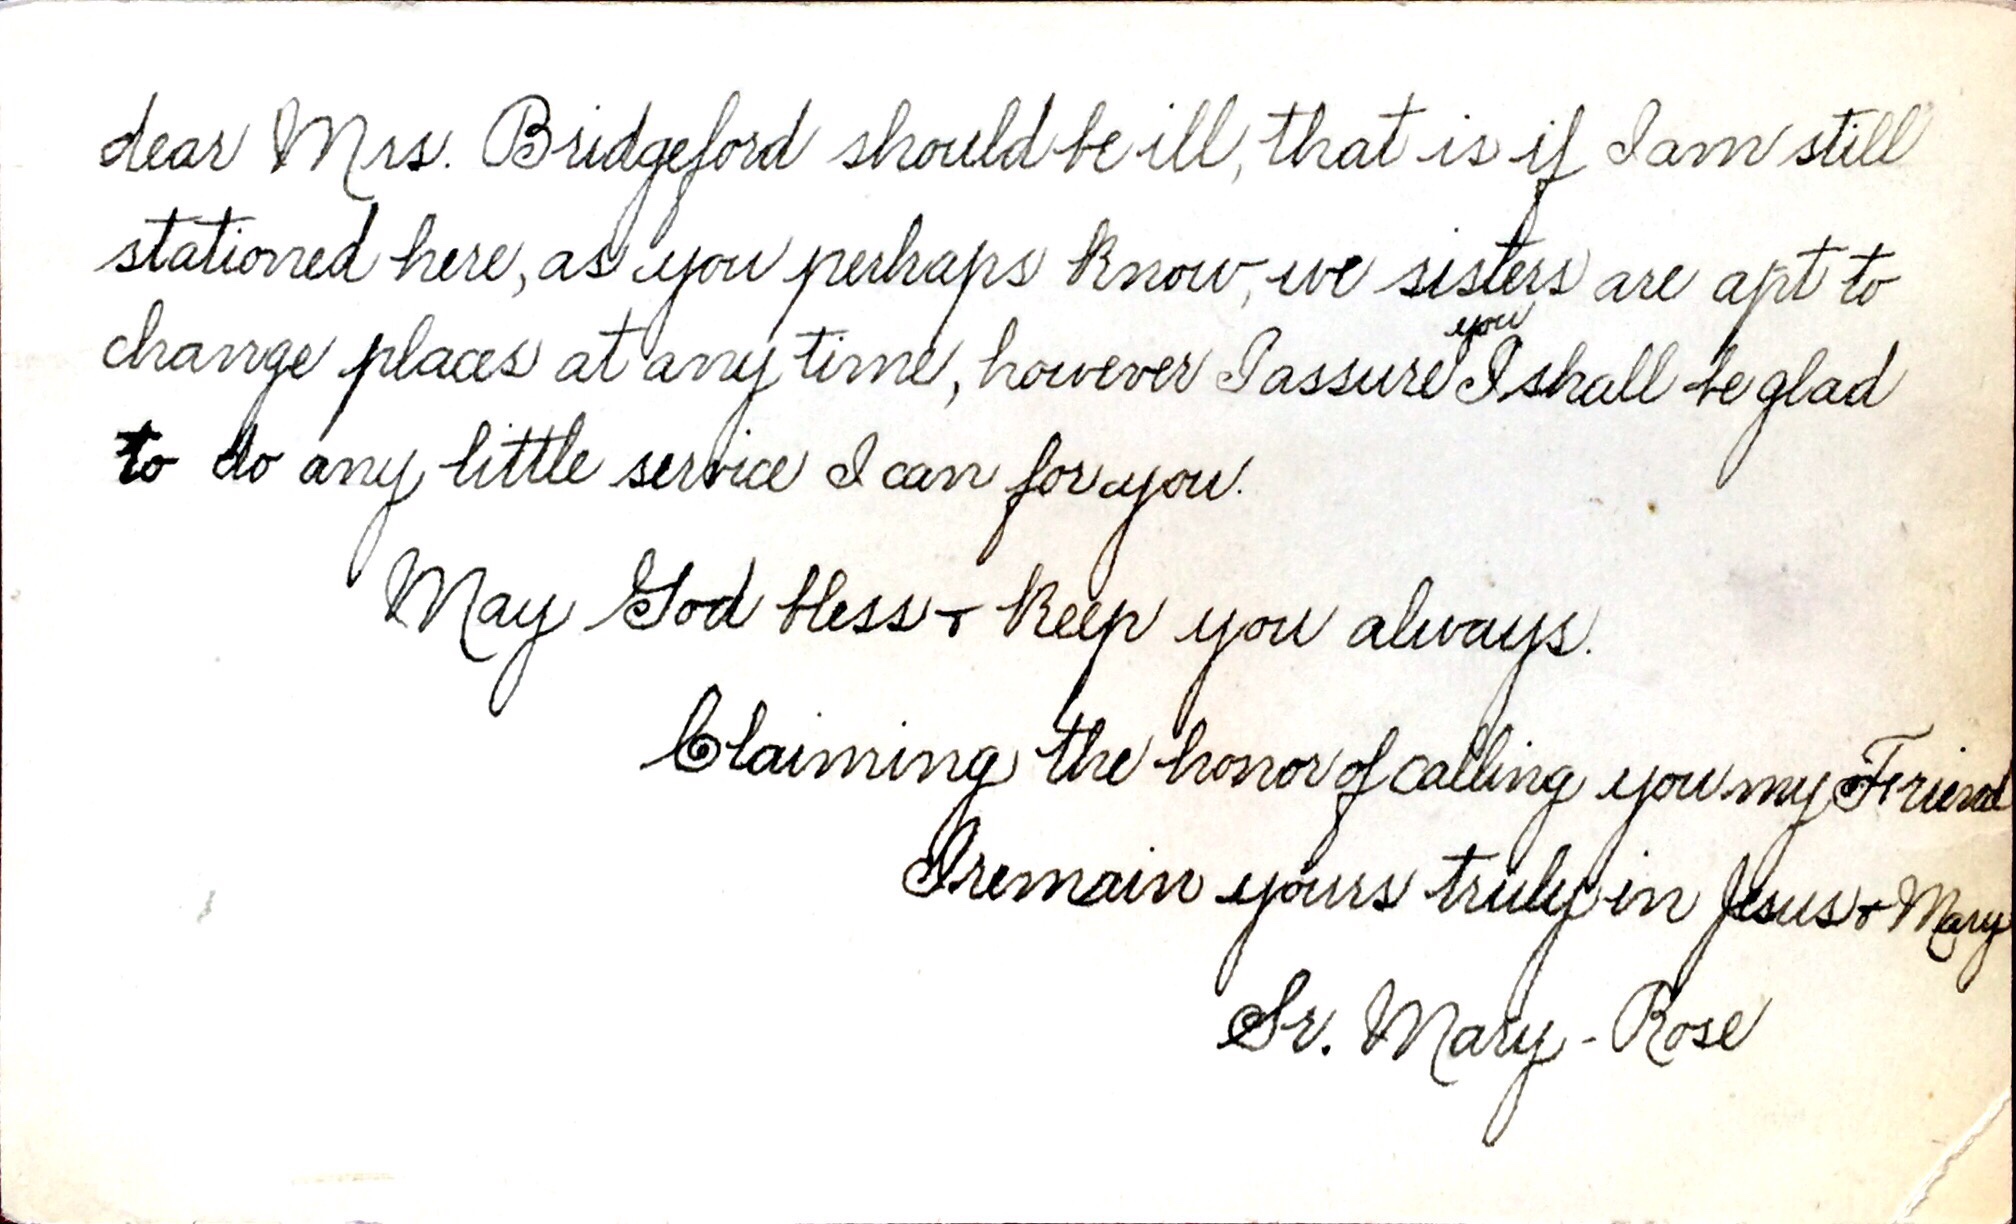 dear Mrs. Bridgeford should be ill, that is if I am still
stationed here, as you perhaps know, we sisters are apt to
change places at any time, however I assure you I shall be glad
to do any little service I can for you.
May God bless & keep you always.
Claiming the honor of calling you my Friend
I remain yours truly in Jesus & Mary
Sr. Mary-Rose